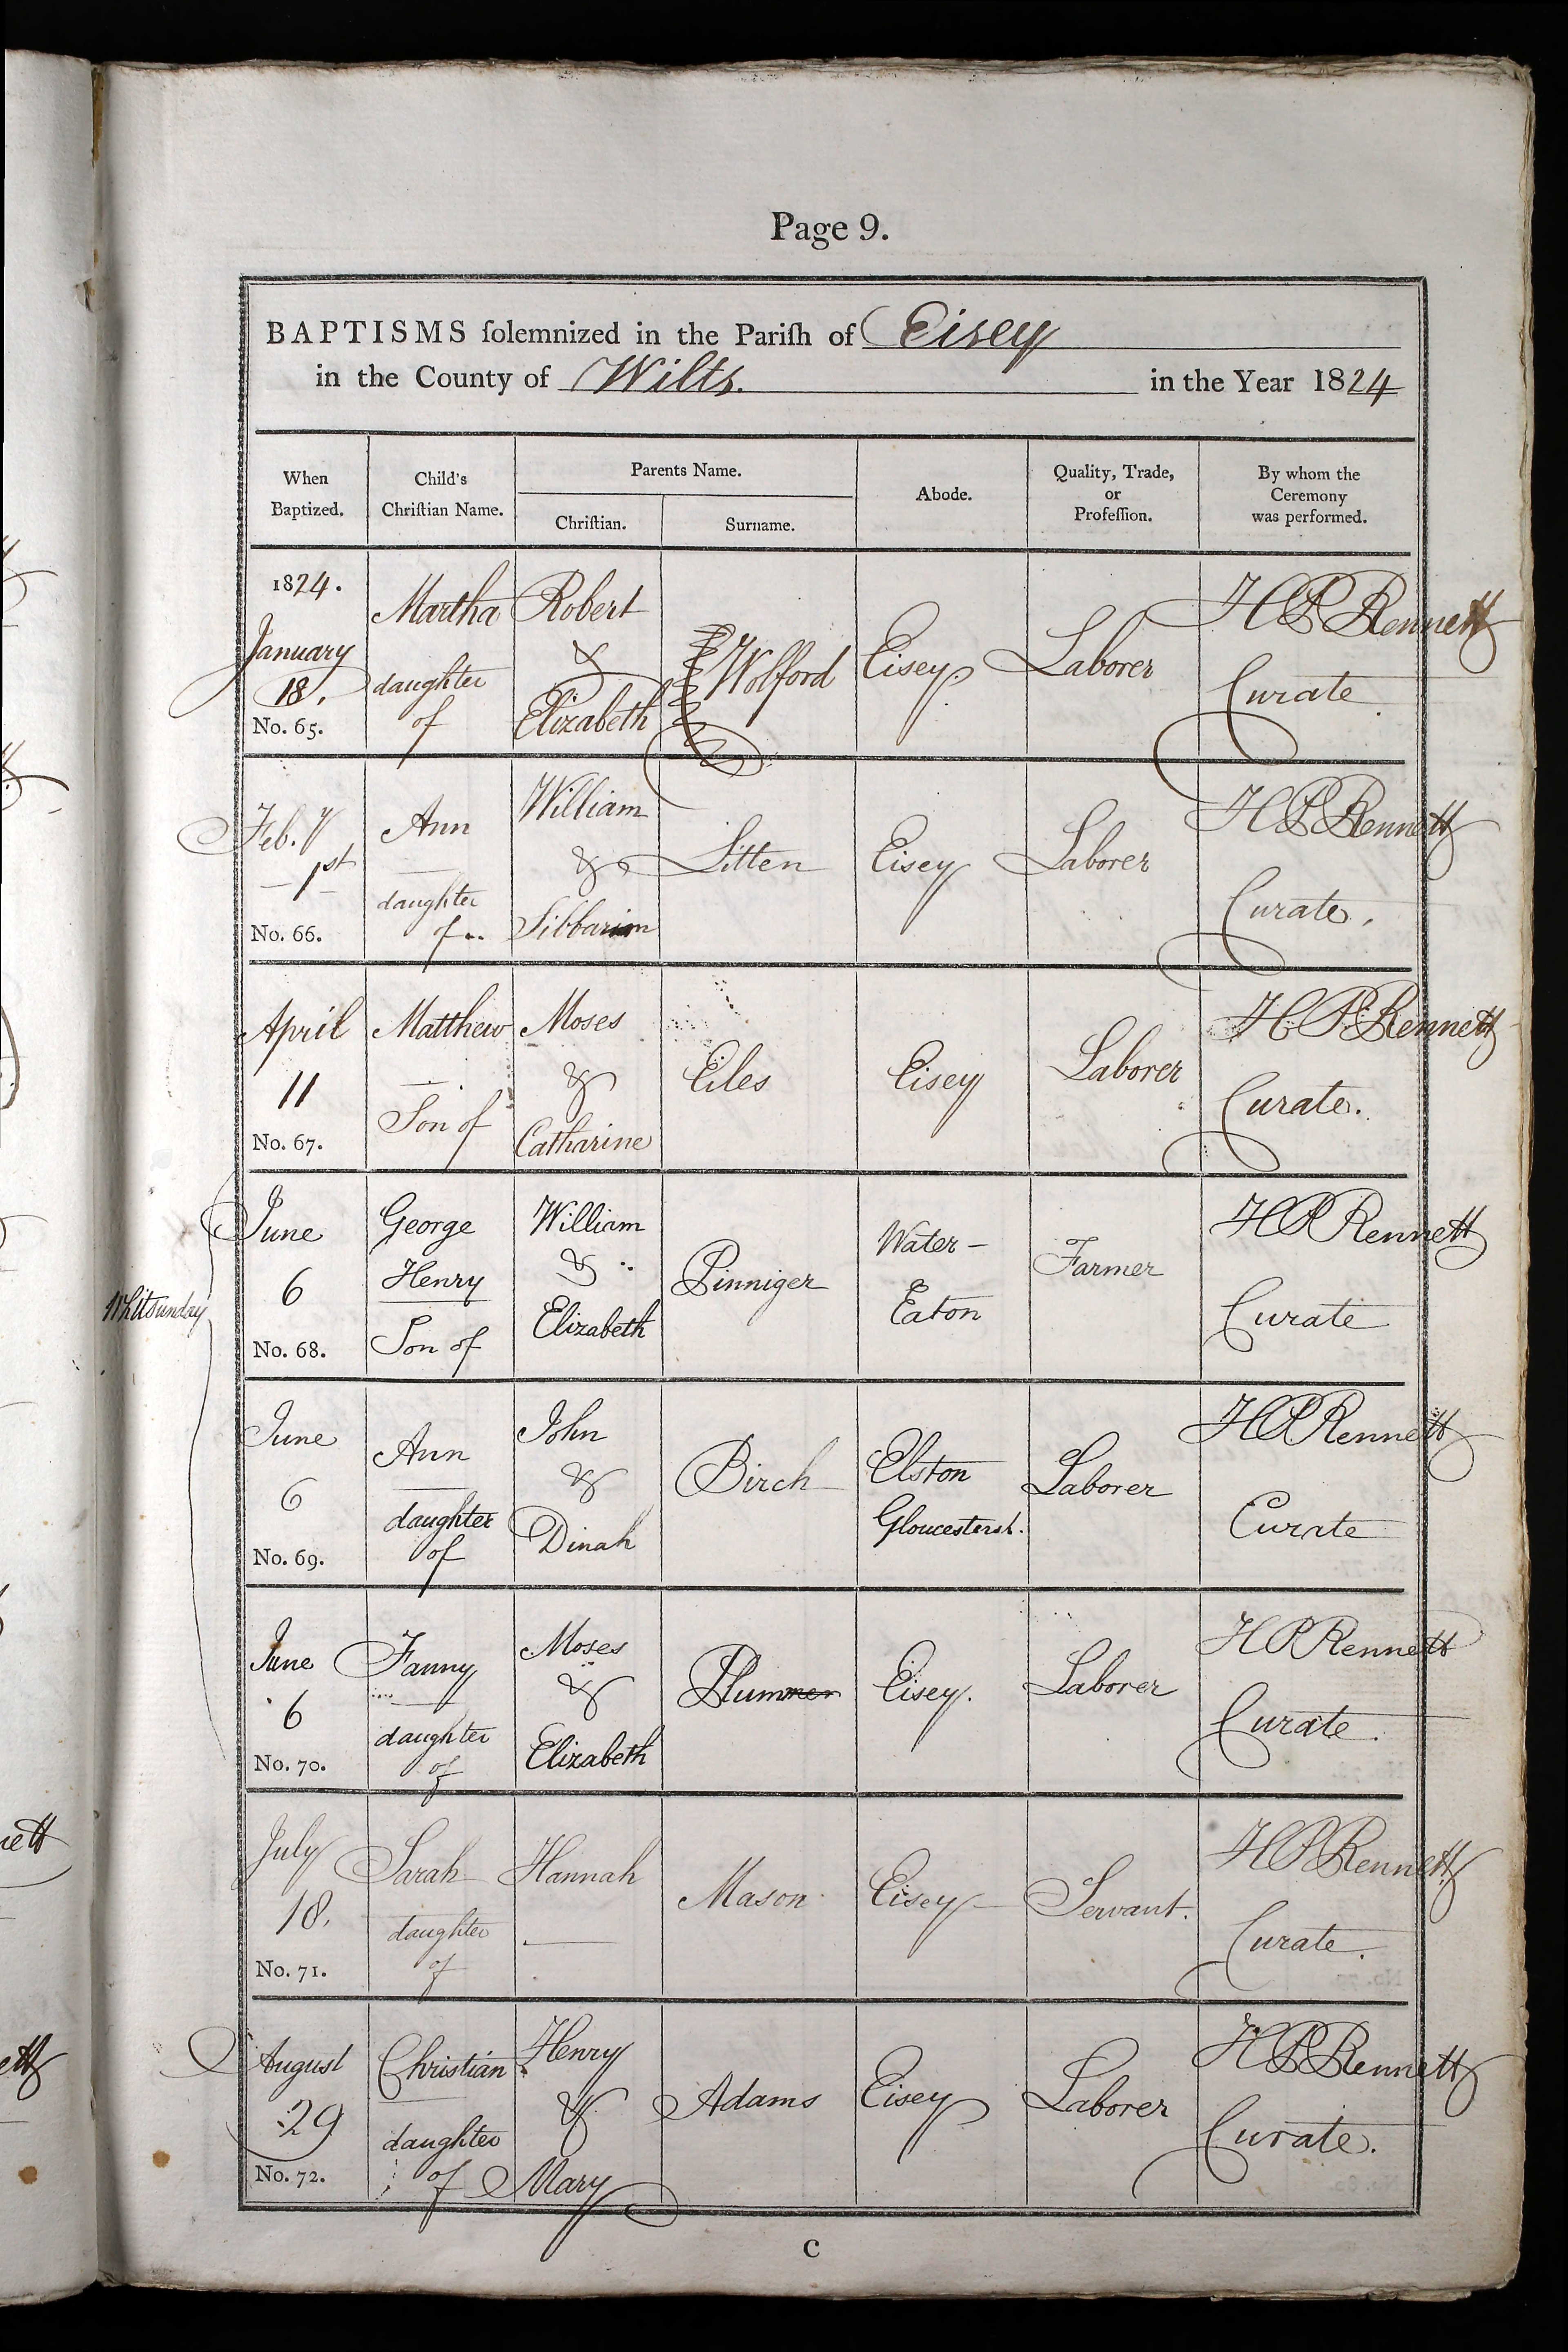 Page 9.
BAPTISMS ſolemnized in the Pariſh of Eisey
in the County of Wilts. in the Year 1824
When Baptized.
Child's Chriſtian Name.
Parents Name.
Chriſtian.
Surname.
Abode.
Quality, Trade, or Profeſſion.
By whom the Ceremony was performed.
1824.
January
18.
No. 65.
Martha
daughter
of
Robert
&
Elizabeth
Wolford
Eisey.
Laborer
H P Rennett
Curate
Feb.y
1st
No. 66.
Ann
daughter
of
William
&
Litten
Eisey
Laborer
H P Rennett
Curate.
April
11
No. 67.
Matthew
Son of
Moses
&
Catharine
Eiles
Eisey
Laborer
H P Rennett
Curate.
Whitsunday
June
6
No. 68.
George
Henry
Son of
William
&
Elizabeth
Pinniger
Water-
Eaton
Farmer
H P Rennett
Curate
June
6
No. 69.
Ann
daughter
of
John
&
Dinah
Birch
Elston
Gloucestersh.
Laborer
H P Rennett
Curate
June
6
No. 70.
Fanny
daughter
of
Moses
&
Elizabeth
Plummer
Eisey.
Laborer
H P Rennett
Curate.
July
18.
No. 71.
Sarah
daughter
of
Hannah
Mason
Eisey
Servant.
H P Rennett
Curate.
August
29
No. 72.
Christian
daughter
of
Henry
&
Mary
Adams
Eisey
Laborer
H P Rennett
Curate.
C